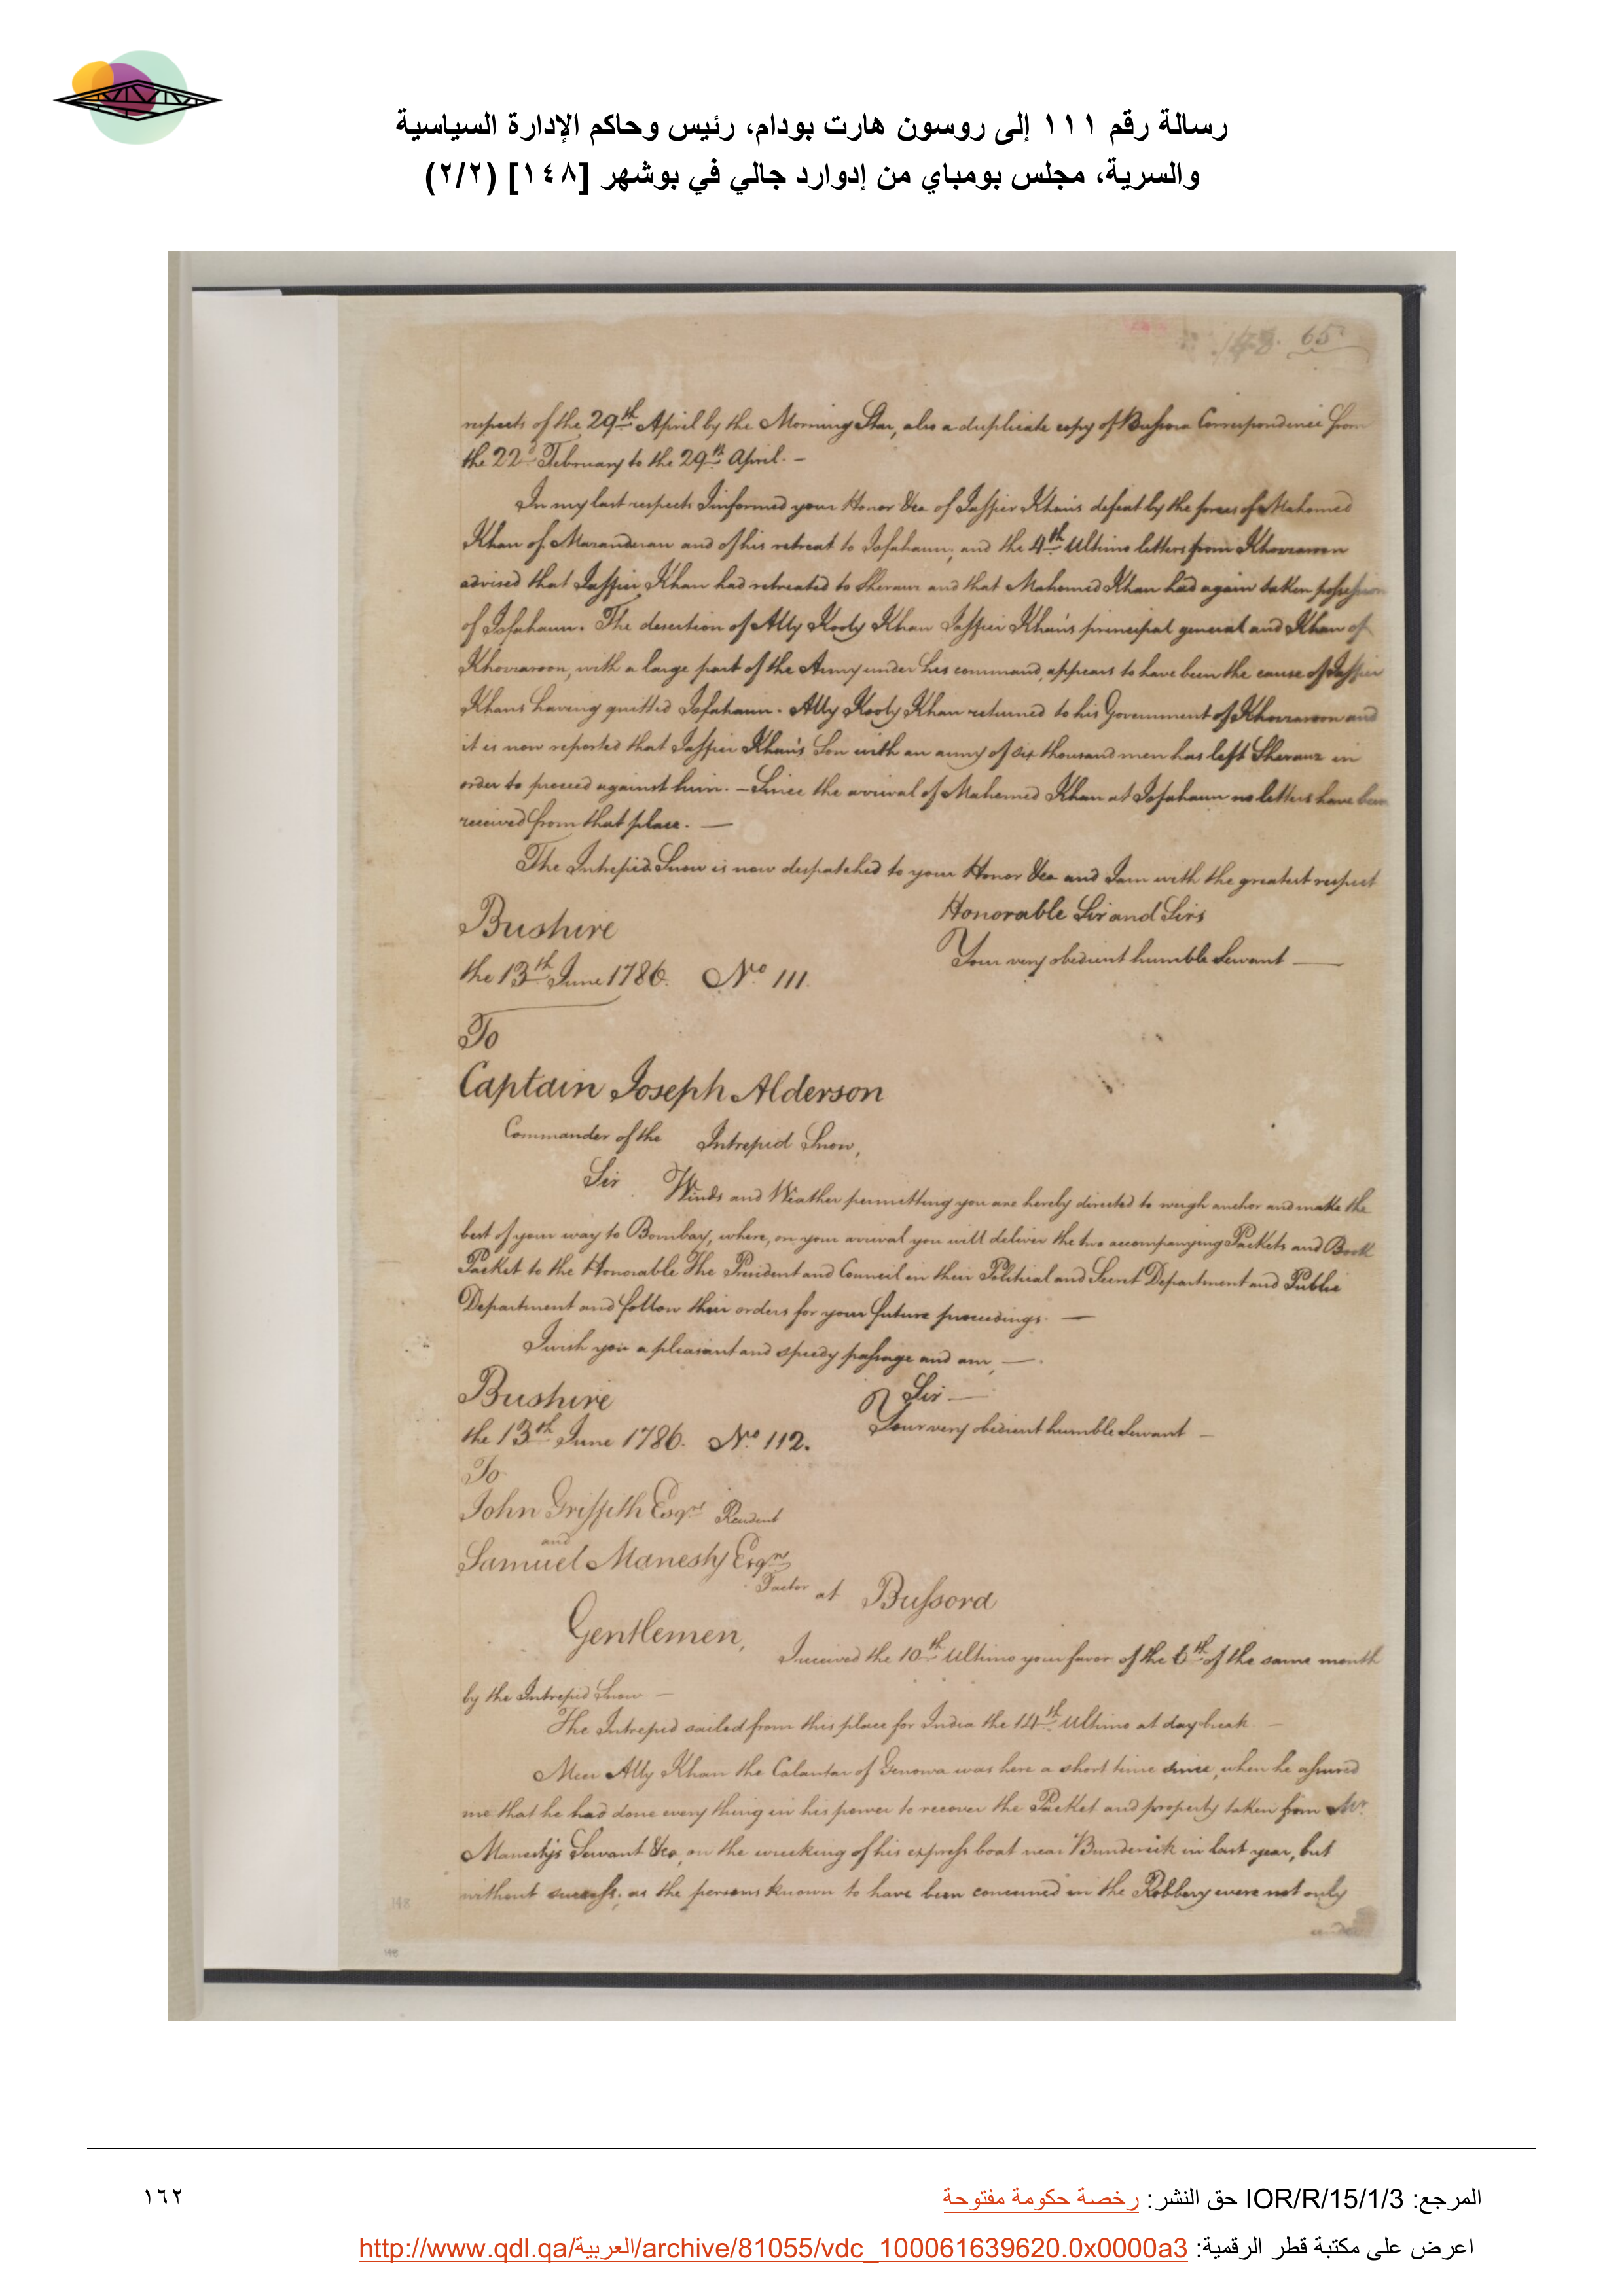 رسالة رقم ١١١ إلى روسون هارت بودام، رئيس وحاكم الإدارة السياسية
والسرية، مجلس بومباي من إدوارد جالي في بوشهر [١٤٨] (٢/٢)
148. 65
respects of the 29th April by the Morning Star, also a duplicate copy of Bussora Correspondence from
the 22d February to the 29th April. –
In my last respects I informed your Honor &ca of Jaffier Khan's defeat by the forces of Mahomed
Khan of Mazanderan and of his retreat to Isfahaun; and the 4th Ultimo letters from Khozaroon
advised that Jaffier Khan had retreated to Sherauz and that Mahomed Khan had again taken possession
of Isfahaun. The desertion of Ally Kooly Khan Jaffier Khan's principal general and Khan of
Khozaroon, with a large part of the Army under his command, appears to have been the cause of Jaffier
Khans having quitted Isfahaun. Ally Kooly Khan returned to his Government of Khozaroon and
it is now reported that Jaffier Khan's Son with an army of six thousand men has left Sherauz in
order to proceed against him. – Since the arrival of Mahomed Khan at Isfahaun no letters have been
received from that place. —
The Intrepid Snow is now despatched to your Honor &ca and I am with the greatest respect
Honorable Sir and Sirs
Bushire
Your very obedient humble Servant —
the 13th June 1786. No 111.
To
Captain Joseph Alderson
Commander of the Intrepid Snow,
Sir Winds and Weather permitting you are hereby directed to weigh anchor and make the
best of your way to Bombay, where, on your arrival you will deliver the two accompanying Packets and Book
Packet to the Honorable The President and Council in their Political and Secret Department and Public
Department and follow their orders for your future proceedings. —
I wish you a pleasant and speedy passage and am, —
Bushire
Sir —
Your very obedient humble Servant –
the 13th June 1786. No 112.
To
John Griffith Esqre Resident
and
Samuel Manesty Esqre
Factor at Bussora
Gentlemen, I received the 10th Ultimo your favor of the 6th of the same month
by the Intrepid Snow –
The Intrepid sailed from this place for India the 14th Ultimo at day break –
Meer Ally Khan the Calantar of Genowa was here a short time since, when he assured
me that he had done every thing in his power to recover the Packet and property taken from Mr
Manesty's Servant &ca, on the wrecking of his express boat near Bunderick in last year, but
without success; as the persons known to have been concerned in the Robbery were not only
148
148
المرجع: IOR/R/15/1/3 حق النشر: رخصة حكومة مفتوحة
١٦٢
اعرض على مكتبة قطر الرقمية: http://www.qdl.qa/العربية/archive/81055/vdc_100061639620.0x0000a3